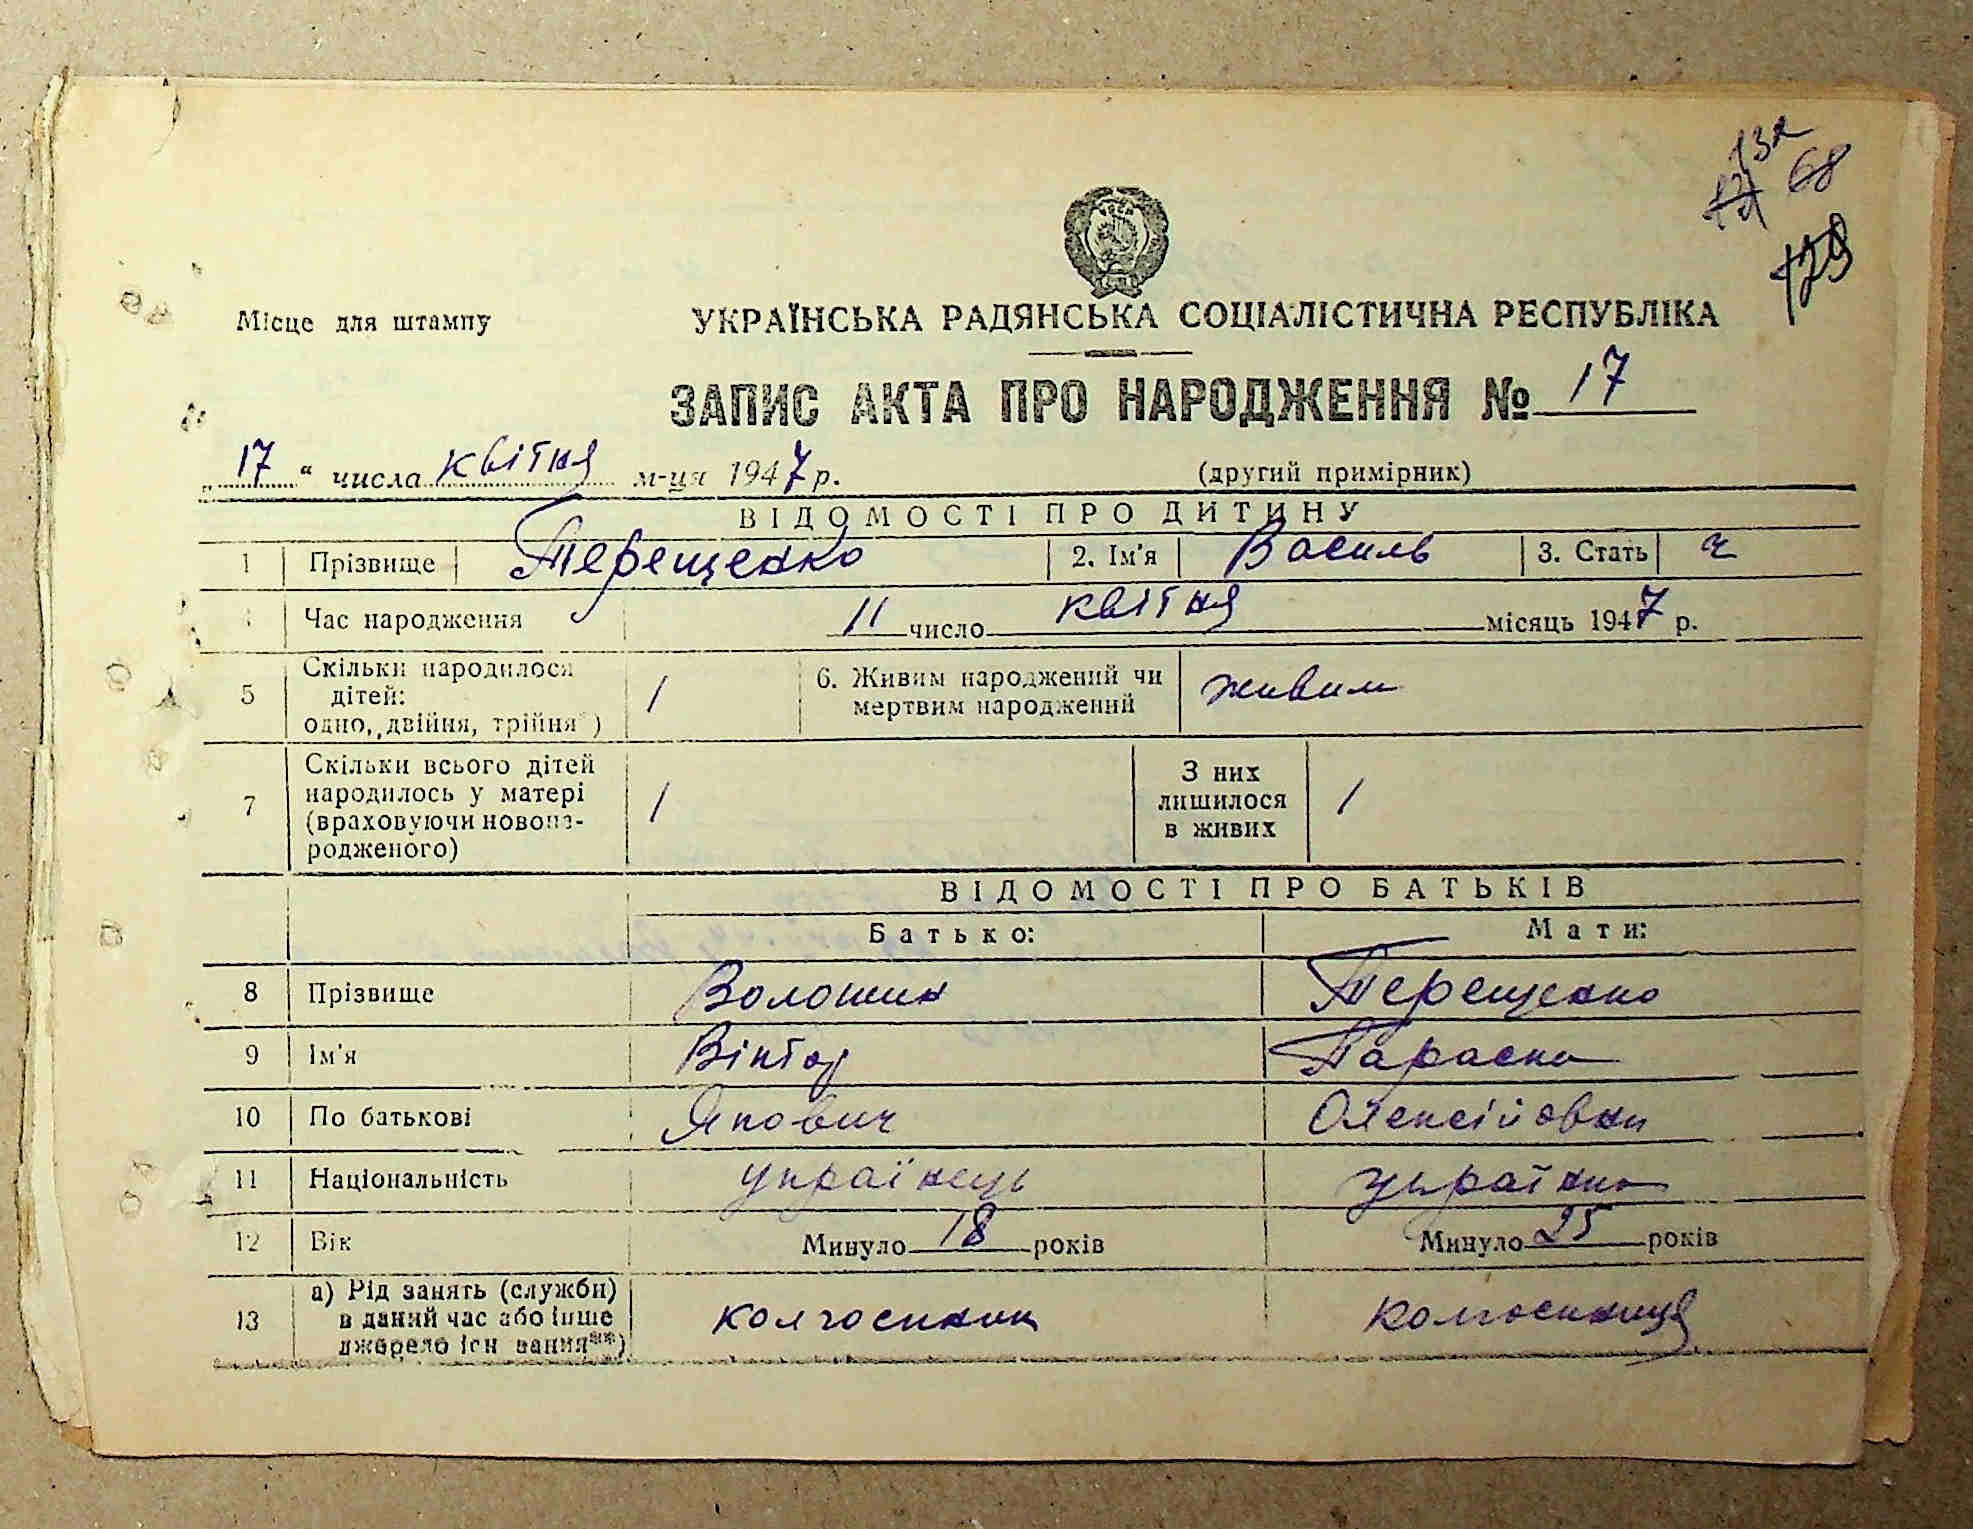 132
121 68
129
Місце для штампу
УКРАЇНСЬКА РАДЯНСЬКА СОЦІАЛІСТИЧНА РЕСПУБЛІКА
ЗАПИС АКТА ПРО НАРОДЖЕННЯ № 17
„17“ числа квітня м-ця 1947 р. (другий примірник)
ВІДОМОСТІ ПРО ДИТИНУ
1 Прізвище Терещенко 2. Ім'я Василь 3. Стать ч
Час народження 11 число квітня місяць 1947 р.
5 Скільки народилося дітей: одно, двійня, трійня*) 1 6. Живим народжений чи мертвим народжений живим
7 Скільки всього дітей народилось у матері (враховуючи новона-родженого) 1 З них лишилося в живих 1
ВІДОМОСТІ ПРО БАТЬКІВ
Батько: Мати:
8 Прізвище Волошин Терещенко
9 Ім'я Віктор Параска
10 По батькові Якович Олексіївна
11 Національність українець українка
12 Вік Минуло 18 років Минуло 25 років
13 а) Рід занять (служби) в даний час або інше джерело існування**) колгоспник колгоспниця